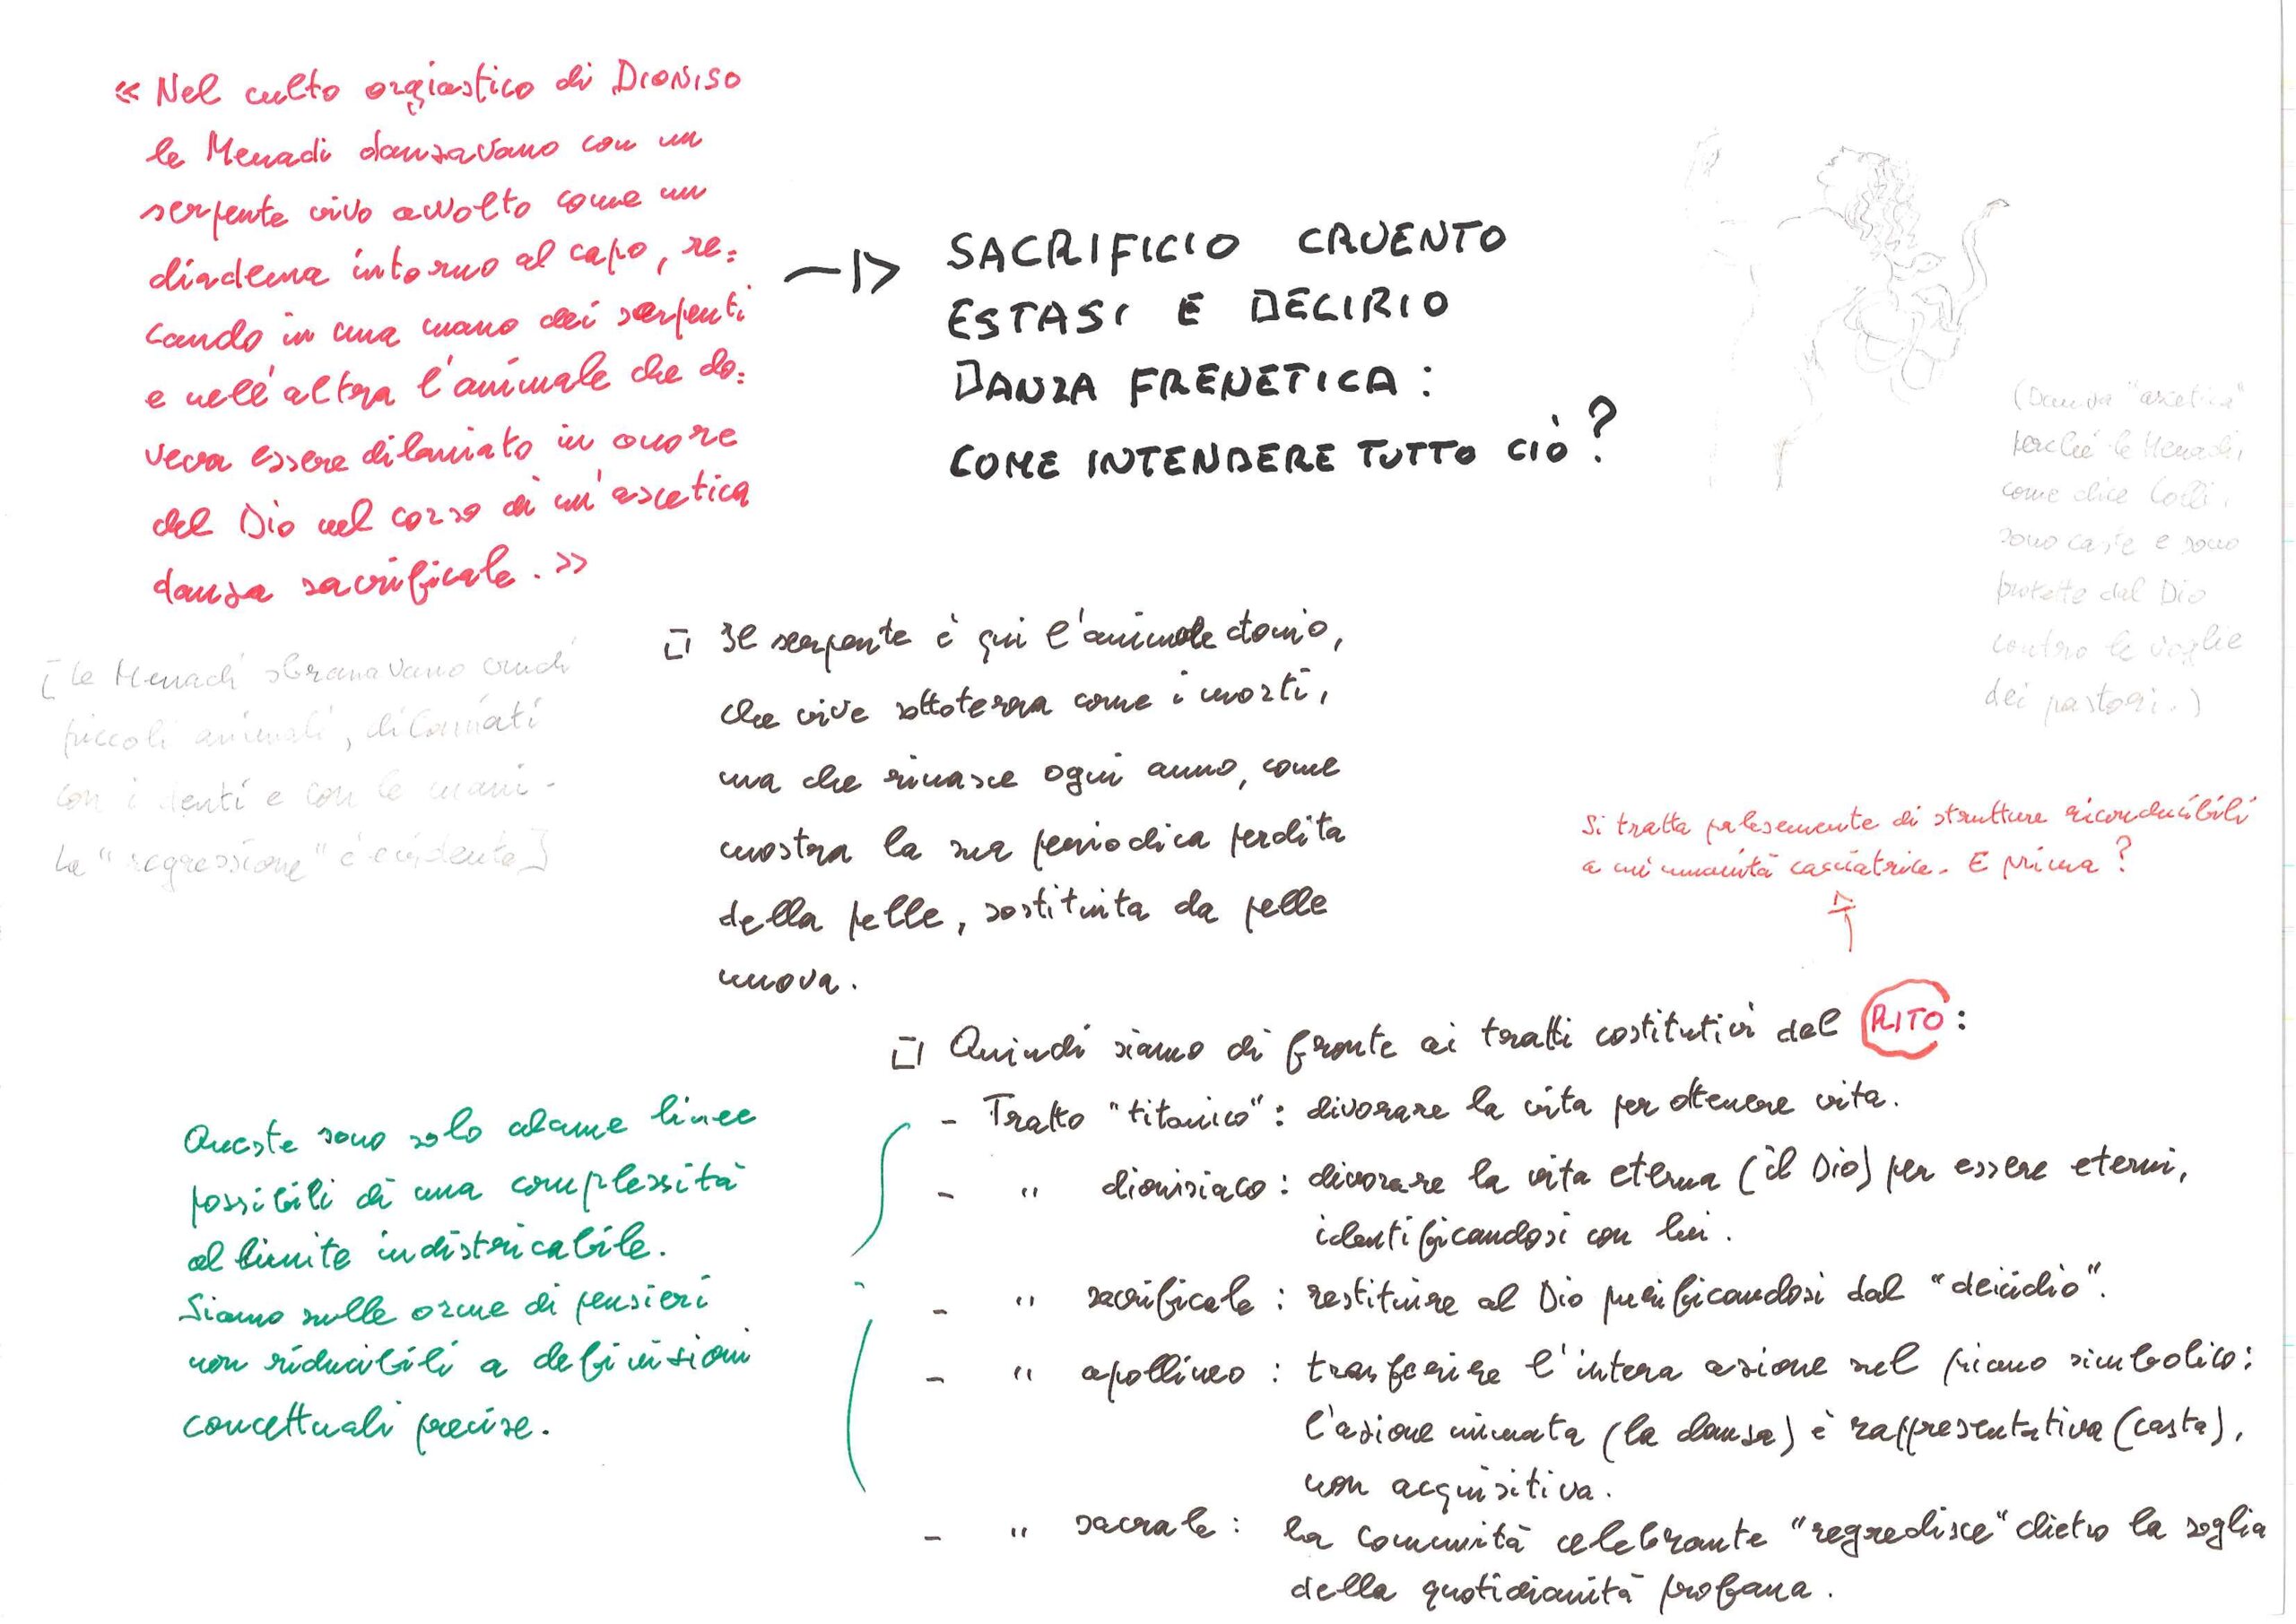 « Nel culto orgiastico di DIONISO
le Menadi danzavano con un
serpente vivo avvolto come un
diadema intorno al capo, re=
cando in una mano dei serpenti
e nell'altra l'animale che do=
veva essere dilaniato in onore
del Dio nel corso di un'ascetica
danza sacrificale. »
[Le Menadi sbranavano crudi
piccoli animali, dilaniati
con i denti e con le mani -
La "regressione" è evidente]
SACRIFICIO CRUENTO
ESTASI E DELIRIO
DANZA FRENETICA :
COME INTENDERE TUTTO CIÒ ?
(Danza "ascetica"
perché le Menadi,
come dice Colli,
sono caste e sono
protette dal Dio
contro le voglie
dei pastori.)
Il serpente è qui l'animale ctonio,
che vive sottoterra come i morti,
ma che rinasce ogni anno, come
mostra la sua periodica perdita
della pelle, sostituita da pelle
nuova.
Si tratta palesemente di strutture riconducibili
a un'umanità cacciatrice. E prima ?
Quindi siamo di fronte ai tratti costitutivi del RITO :
- Tratto "titanico" : divorare la vita per ottenere vita.
- " dionisiaco : divorare la vita eterna (il Dio) per essere eterni,
identificandosi con lui.
- " sacrificale : restituire al Dio purificandosi dal "deicidio".
- " apollineo : trasferire l'intera azione nel piano simbolico:
l'azione mimata (la danza) è rappresentativa (casta),
non acquisitiva.
- " sacrale : la comunità celebrante "regredisce" dietro la soglia
della quotidianità profana.
Queste sono solo alcune linee
possibili di una complessità
al limite indistricabile.
Siamo sulle orme di pensieri
non riducibili a definizioni
concettuali precise.